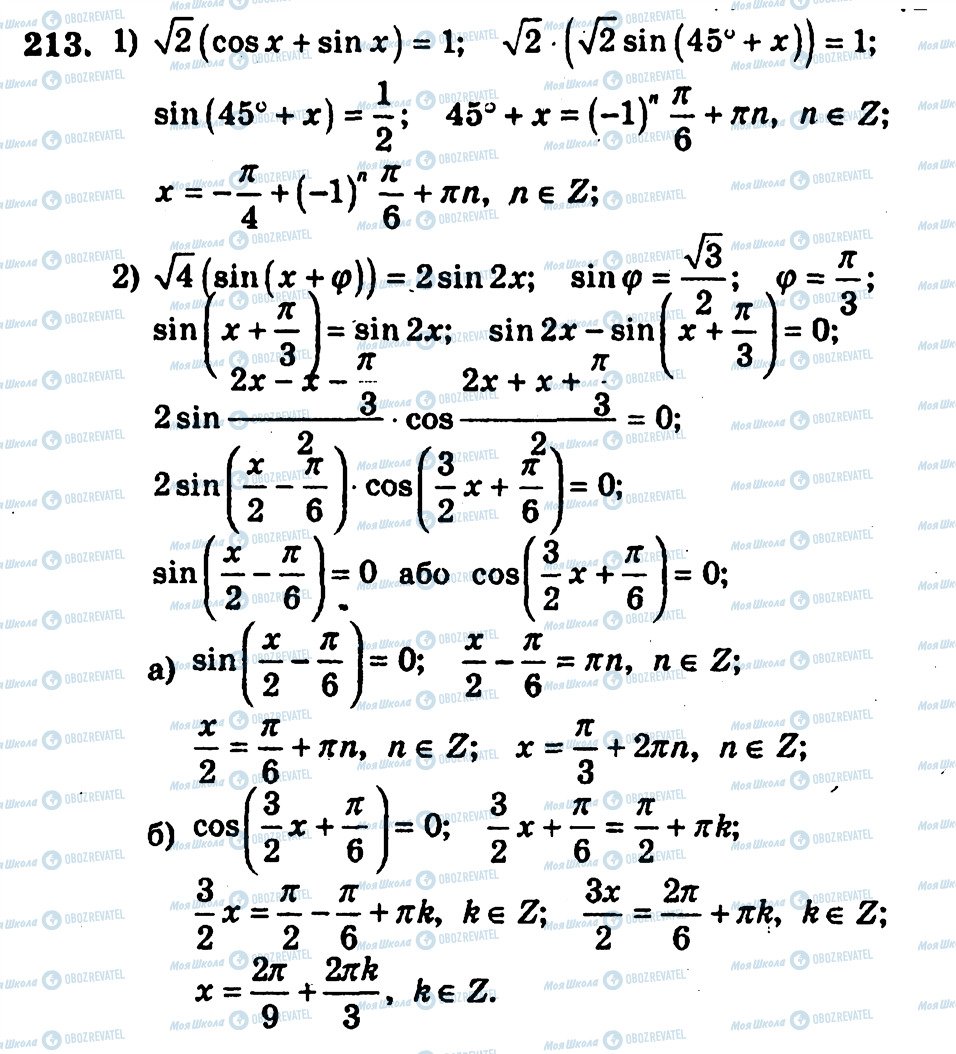 213. 1) √2(cos x + sin x) = 1; √2 · (√2 sin(45° + x)) = 1;
sin(45° + x) = 1/2; 45° + x = (−1)ⁿ π/6 + πn, n ∈ Z;
x = −π/4 + (−1)ⁿ π/6 + πn, n ∈ Z;
2) √4(sin(x + φ)) = 2 sin 2x; sin φ = √3/2; φ = π/3;
sin(x + π/3) = sin 2x; sin 2x − sin(x + π/3) = 0;
2 sin (2x − x − π/3)/2 · cos (2x + x + π/3)/2 = 0;
2 sin(x/2 − π/6) · cos(3/2 x + π/6) = 0;
sin(x/2 − π/6) = 0 або cos(3/2 x + π/6) = 0;
а) sin(x/2 − π/6) = 0; x/2 − π/6 = πn, n ∈ Z;
x/2 = π/6 + πn, n ∈ Z; x = π/3 + 2πn, n ∈ Z;
б) cos(3/2 x + π/6) = 0; 3/2 x + π/6 = π/2 + πk;
3/2 x = π/2 − π/6 + πk, k ∈ Z; 3x/2 = 2π/6 + πk, k ∈ Z;
x = 2π/9 + 2πk/3, k ∈ Z.
Моя Школа OBOZREVATEL